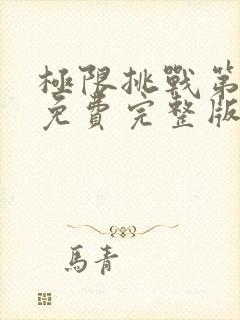 極限挑戰第
免費完整版
馬青